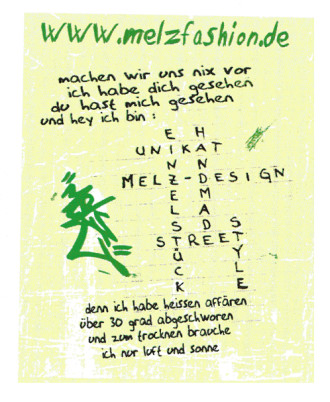 www.melzfashion.de
machen wir uns nix vor
ich habe dich gesehen
du hast mich gesehen
und hey ich bin :
EINZELSTÜCK
HANDMADE
UNIKAT
MELZ-DESIGN
STREET
STYLE
denn ich habe heissen affären
über 30 grad abgeschworen
und zum trocknen brauche
ich nur luft und sonne